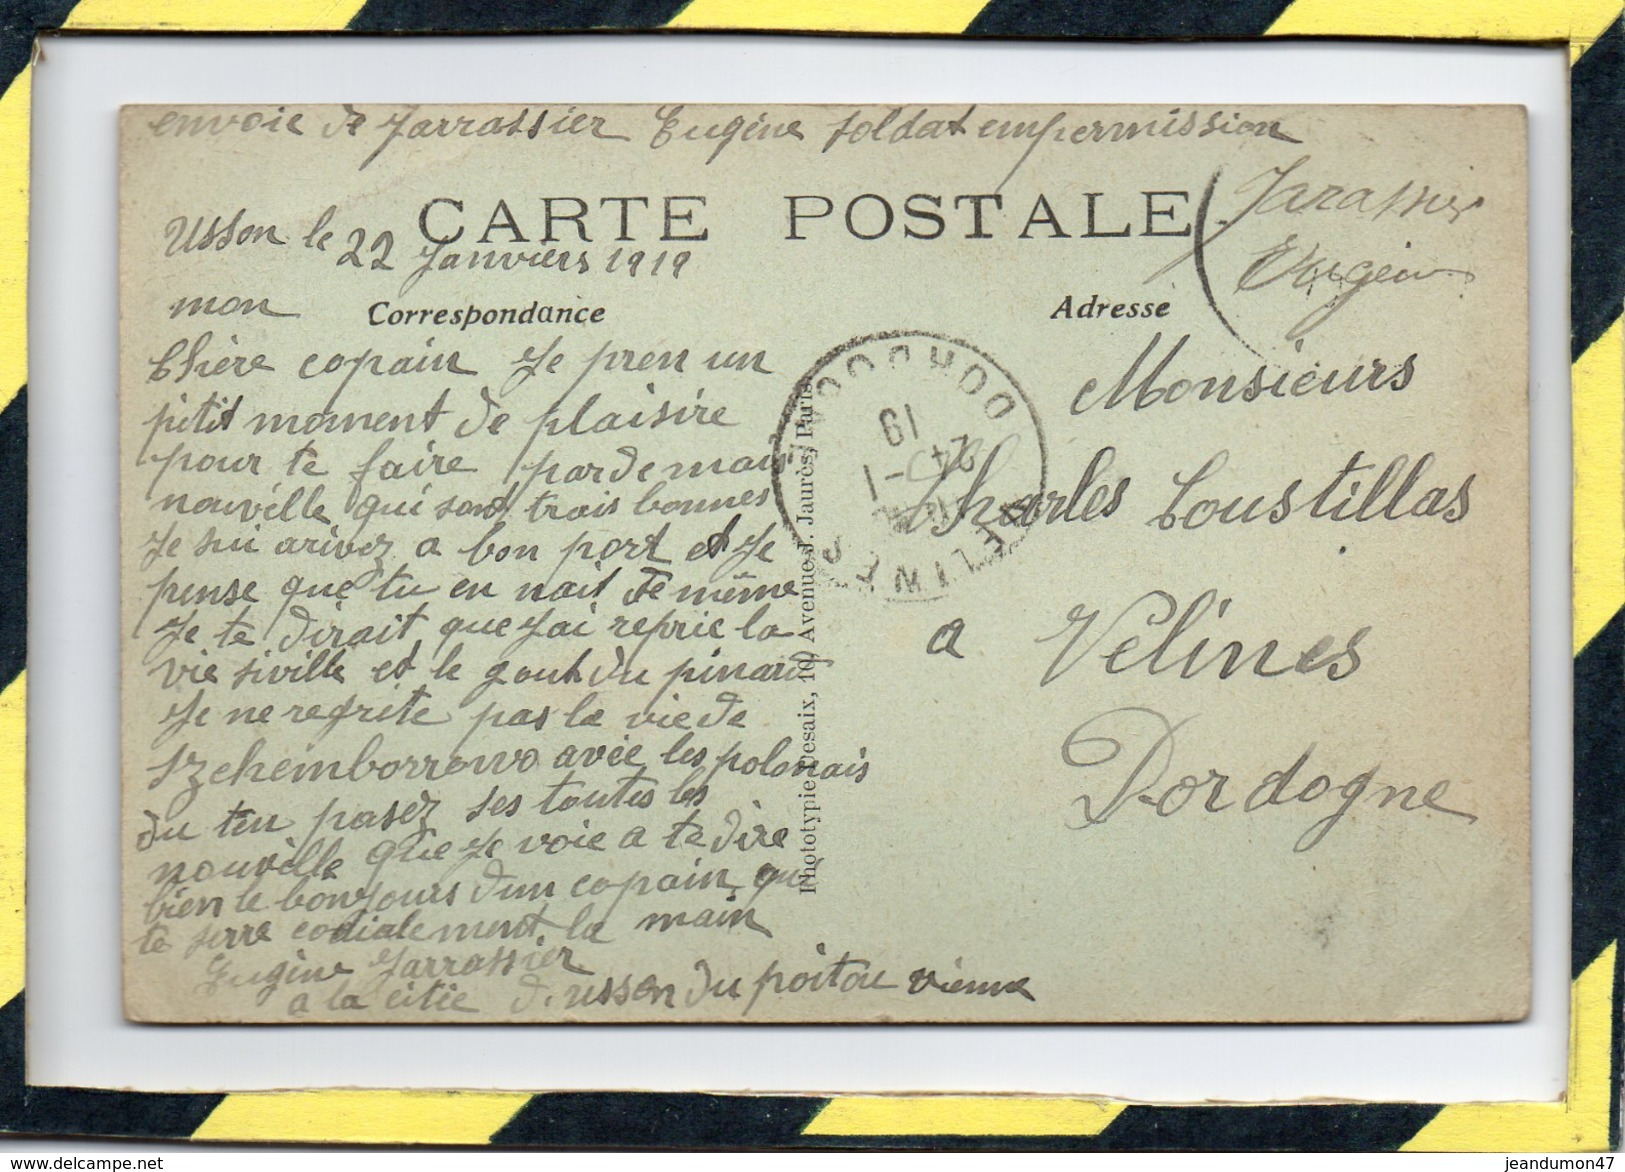 envoie de Jarrassier Eugène soldat empermission
CARTE POSTALE
Jarassier
Eugein
Usson le 22 Janviers 1919
mon
Correspondance
Adresse
Chière copain Je pren un
pitit moment de plaisire
pour te faire par de mais
nouvélle qui sont trais bonnes
Je sui arivez a bon port et Je
pense que tu en nait de même
Je te dirait que J'ai repric la
vie siville et le gout du pinard
Je ne regrite pas la vie de
Szchemborrowo avée les polonais
du ten pasez ses toutes les
nouvélle que Je voie a te dire
bien le bonjours d'un copain qui
te serre codialement la main
Eugène Jarrassier
a la citie d'usson du poitou vienne
Monsieurs
Charles Coustillas
a Vélines
Dordogne
Phototypie Desaix, 10, Avenue J. Jaurès, Paris
24 -1
19
VELINES
DORDOGNE
jeandumon47